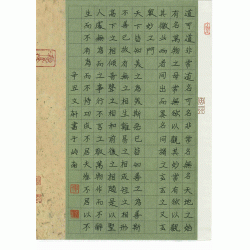 道可道非常道名可名非常名無名天地之始
有名萬物之母常無欲以觀其妙常有欲以觀
其徼此兩者同出而異名同謂之玄玄之又玄
眾妙之門
天下皆知美之為美斯惡已皆知善之為善斯
不善已故有無之相生難易之相成長短之相形
高下之相傾音聲之相和前後之相隨是以聖
人處無為之事行不言之教萬物作而不辭
生而不有為而不恃功成不居夫唯不居是以不
辛丑文軒書于岭南